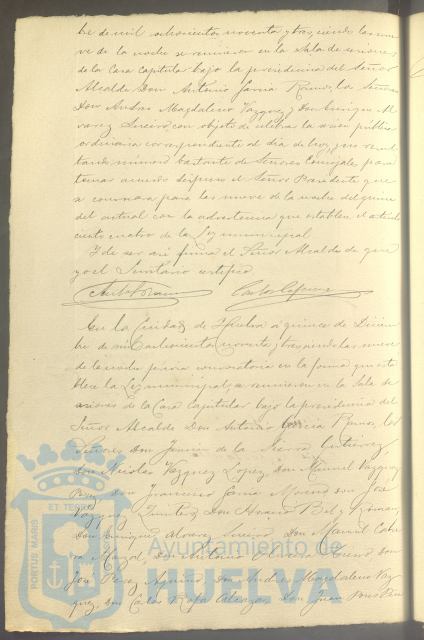 bre de mil ochocientos noventa y tres, siendo las nue
ve de la noche se reunieron en la Sala de sesiones
de la Casa Capitular bajo la presidencia del Señor
Alcalde Don Antonio García Ramos, los Señores
Don Andres Magdaleno Vazquez y Don Enrique Al
varez Sineiro con objeto de celebrar la sesion pública
ordinaria correspondiente al dia de hoy, y no resul
tando número bastante de Señores Concejales para
tomar acuerdo dispuso el Señor Presidente que
se convocara para las nueve de la noche del quince
del actual con la advertencia que establece el artículo
ciento cuatro de la Ley municipal.
Y de ser así firma el Señor Alcalde de que
yo el Secretario certifico.
En la Ciudad de Huelva a quince de Diciem
bre de mil ochocientos noventa y tres, siendo las nueve
de la noche previa convocatoria en la forma que esta
blece la Ley municipal, se reunieron en la Sala de
sesiones de la Casa Capitular bajo la presidencia del
Señor Alcalde Don Antonio García Ramos, los
Señores Don de la Sierra Gutierrez,
Don Nicolas Vazquez Lopez, Don Manuel Vazquez
Don Francisco García Moreno, Don José
Vazquez Don y Roman,
Don Enrique Alvarez Sineiro, Don Manuel
Don Antonio Don
José Perez Don Andres Magdaleno Vaz
quez, Don Carlos Don Juan
PORTUS MARIS ET TERRAE
Ayuntamiento de
HUELVA